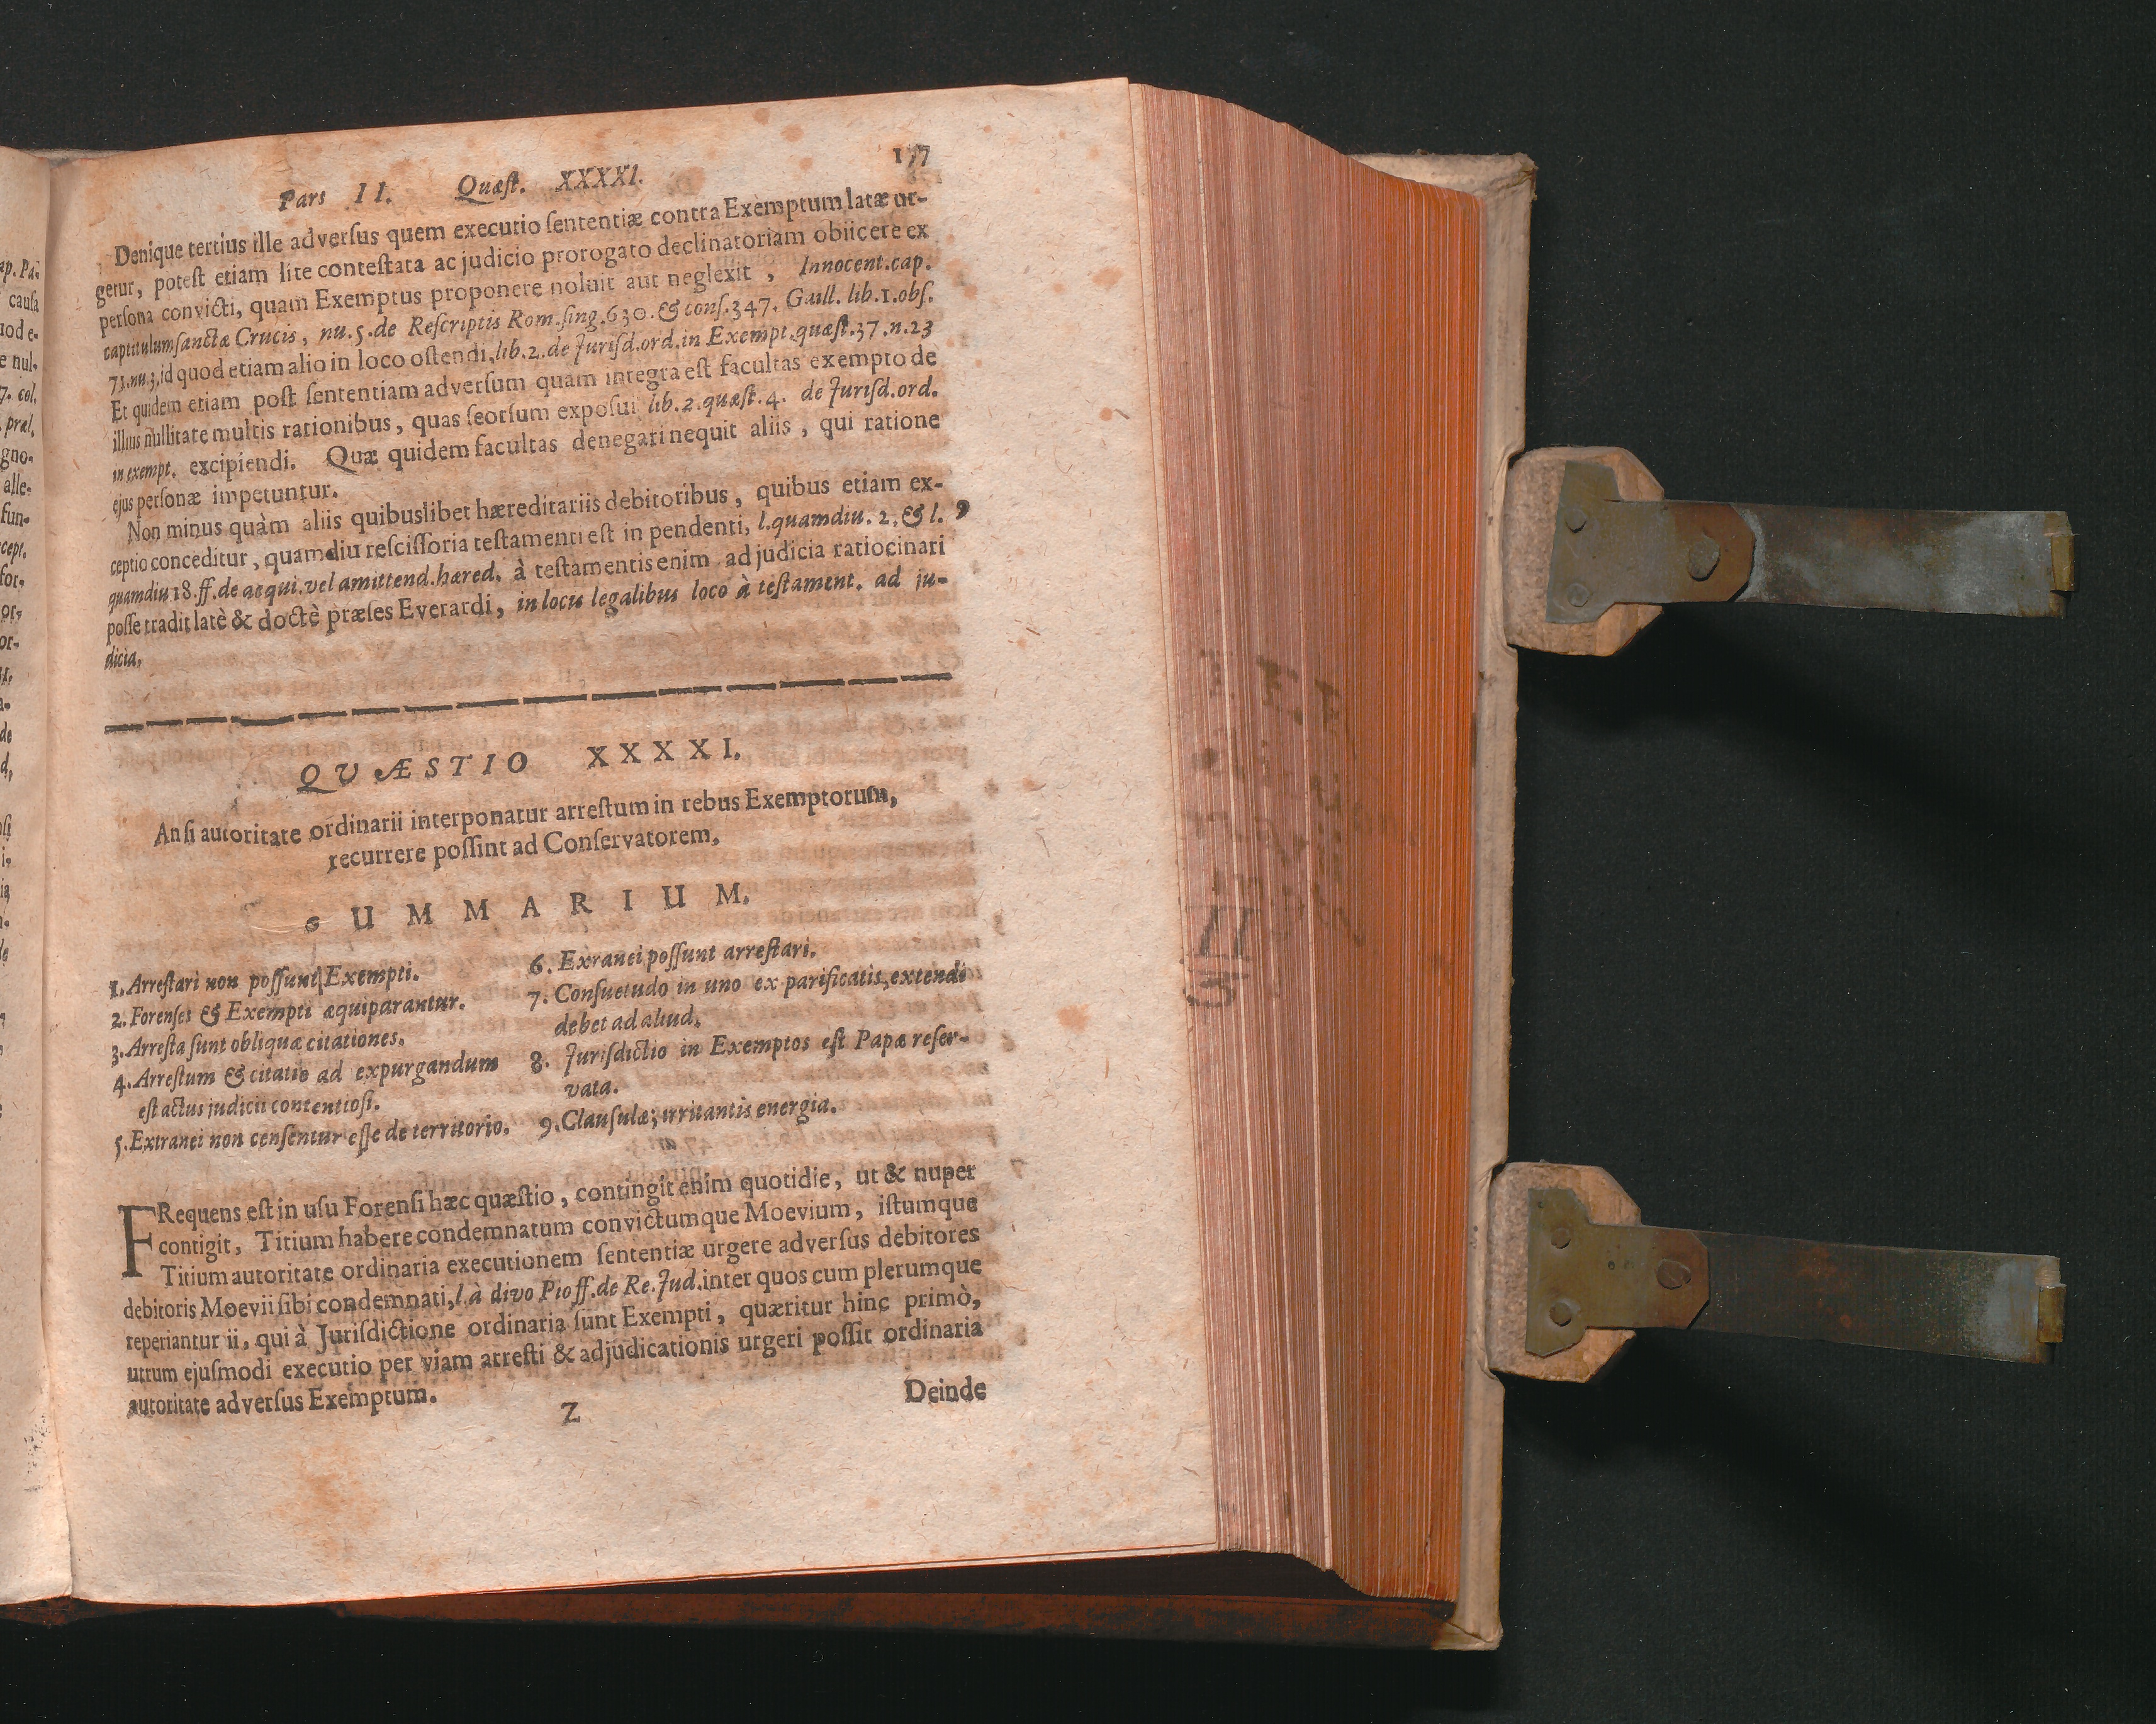 Pars II. Quæſt. XXXXI. 177
Denique tertius ille adverſus quem executio ſententiæ contra Exemptum latæ ur-
getur, poteſt etiam lite conteſtata ac judicio prorogato declinatoriam obiicere ex
perſona convicti, quam Exemptus proponere noluit aut neglexit, Innocent. cap.
captitulum ſanctæ Crucis, nu. 5. de Reſcriptis Rom. ſing. 630. & conſ. 347. Gaill. lib. 1. obſ.
71. nu. 3, id quod etiam alio in loco oſtendi, lib. 2. de Jurisd. ord. in Exempt. quæſt. 37. n. 23
Et quidem etiam poſt ſententiam adverſum quam integra eſt facultas exempto de
illius nullitate multis rationibus, quas ſeorſum expoſui lib. 2. quæſt. 4. de Jurisd. ord.
in exempt. excipiendi. Quæ quidem facultas denegari nequit aliis, qui ratione
ejus perſonæ impetuntur.
Non minus quàm aliis quibuslibet hæreditariis debitoribus, quibus etiam ex-
ceptio conceditur, quamdiu reſciſſoria teſtamenti eſt in pendenti, l. quamdiu. 2. & l. 9
quamdiu 18. ff. de acqui. vel amittend. hæred. à teſtamentis enim ad judicia ratiocinari
poſſe tradit latè & doctè præſes Everardi, in locis legalibus loco à teſtament. ad ju-
dicia.
QVÆSTIO XXXXI.
An ſi autoritate ordinarii interponatur arreſtum in rebus Exemptorum,
recurrere poſſint ad Conſervatorem.
SUMMARIUM.
1. Arreſtari non poſſunt Exempti.
2. Forenſes & Exempti æquiparantur.
3. Arreſta ſunt obliquæ citationes.
4. Arreſtum & citatio ad expurgandum
eſt actus judicii contentioſi.
5. Extranei non cenſentur eſſe de territorio.
6. Exranei poſſunt arreſtari.
7. Conſuetudo in uno ex parificatis, extendi
debet ad aliud.
8. Jurisdictio in Exemptos eſt Papæ reſer-
vata.
9. Clauſulæ; irritantis energia.
FRequens eſt in uſu Forenſi hæc quæſtio, contingit enim quotidie, ut & nuper
contigit, Titium habere condemnatum convictumque Moevium, iſtumque
Titium autoritate ordinaria executionem ſententiæ urgere adverſus debitores
debitoris Moevii ſibi condemnati, l. à divo Pio ff. de Re. Jud. inter quos cum plerumque
reperiantur ii, qui à Jurisdictione ordinaria ſunt Exempti, quæritur hinc primò,
utrum ejuſmodi executio per viam arreſti & adjudicationis urgeri poſſit ordinaria
autoritate adverſus Exemptum.
Z Deinde